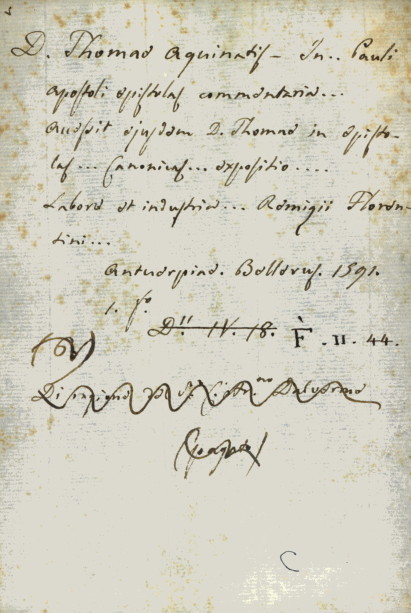 D. Thomae Aquinatis - In.. Pauli
apostoli epistolas commentaria...
Accessit ejusdem D. Thomae in episto-
las... Canonicas... expositio....
Labore et industria... Remigii Floren-
tini...
Antuerpiae. Bellerus. 1591.
1. fo
D'' IV. 18. F. II. 44.
C